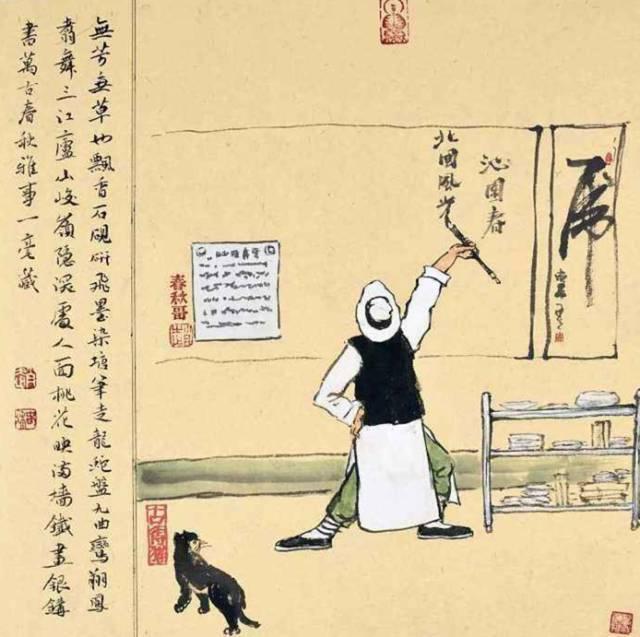 虎
沁園春
北國風光
春秋哥
無芳無草也飄香石硯研飛墨染塘筆走龍蛇盤九曲鸞翔鳳
翥舞三江廬山峻嶺隱深處人面桃花映滿墻鐵畫銀鈎
書萬古春秋雅事一毫藏